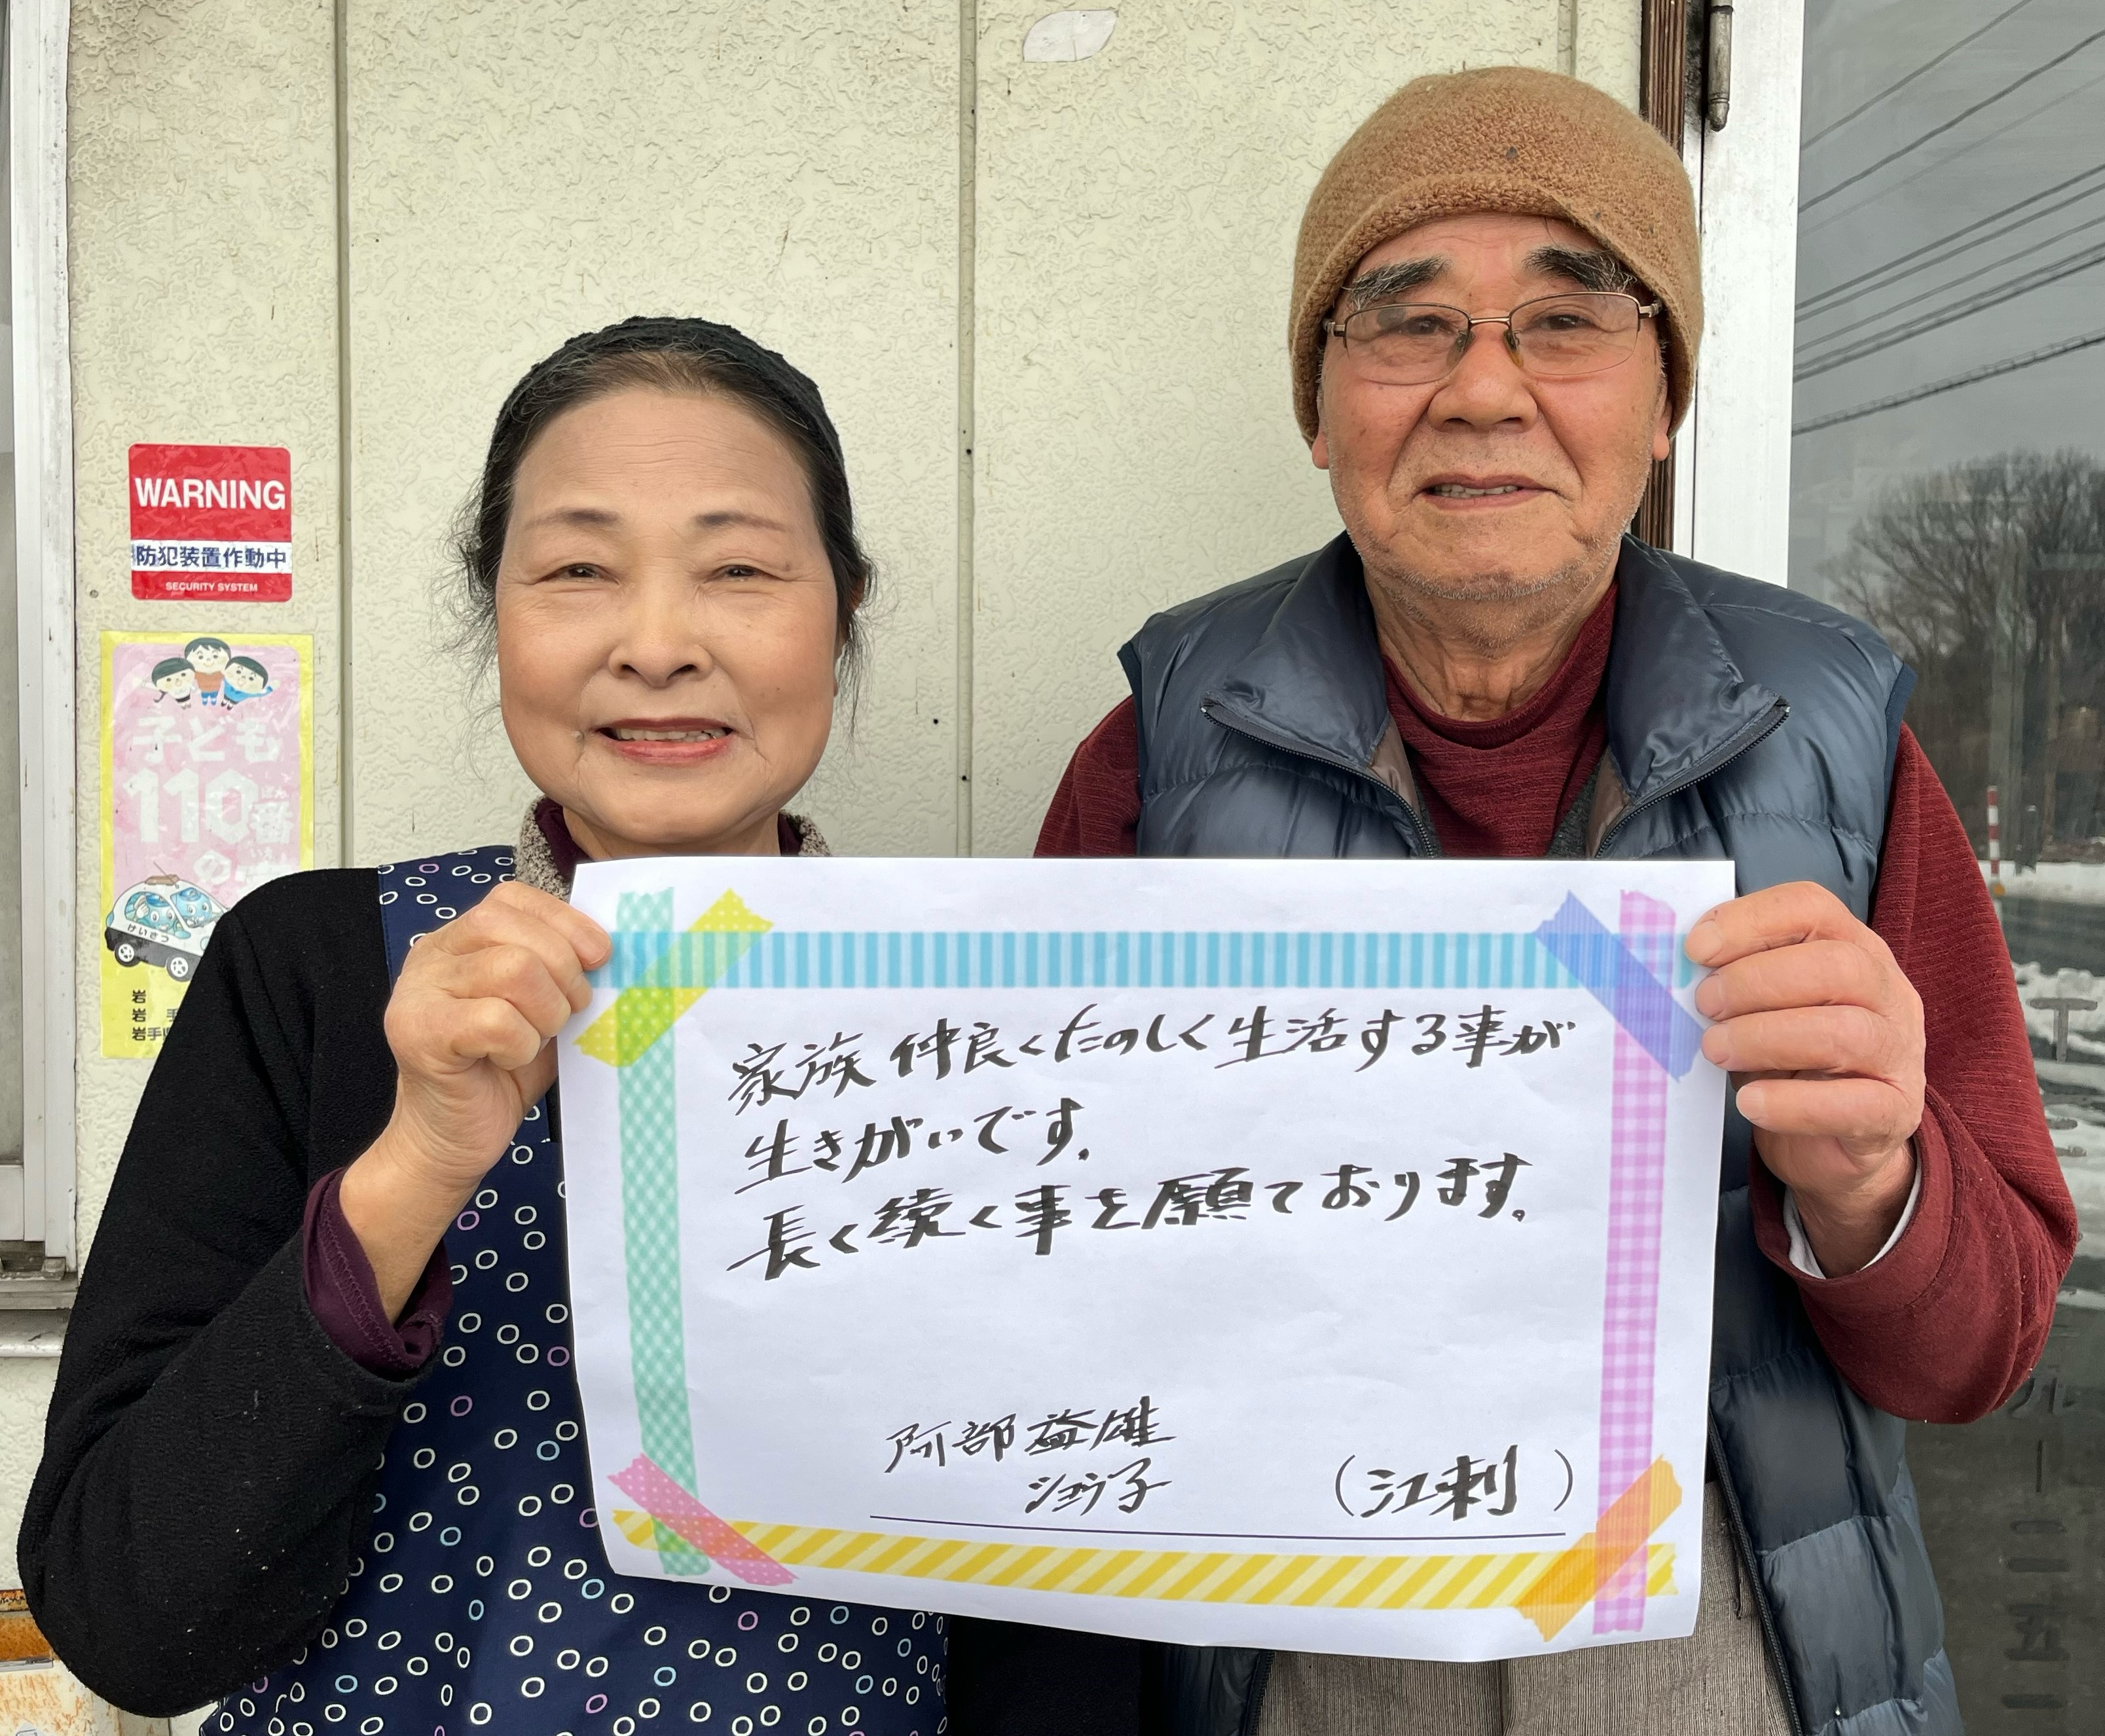 WARNING
防犯装置作動中
SECURITY SYSTEM
子ども
110番
けいさつ
岩
岩 手
岩手
家族 仲良くたのしく生活する事が
生きがいです。
長く続く事を願ております。
阿部 益雄
ショウ子
(江刺)